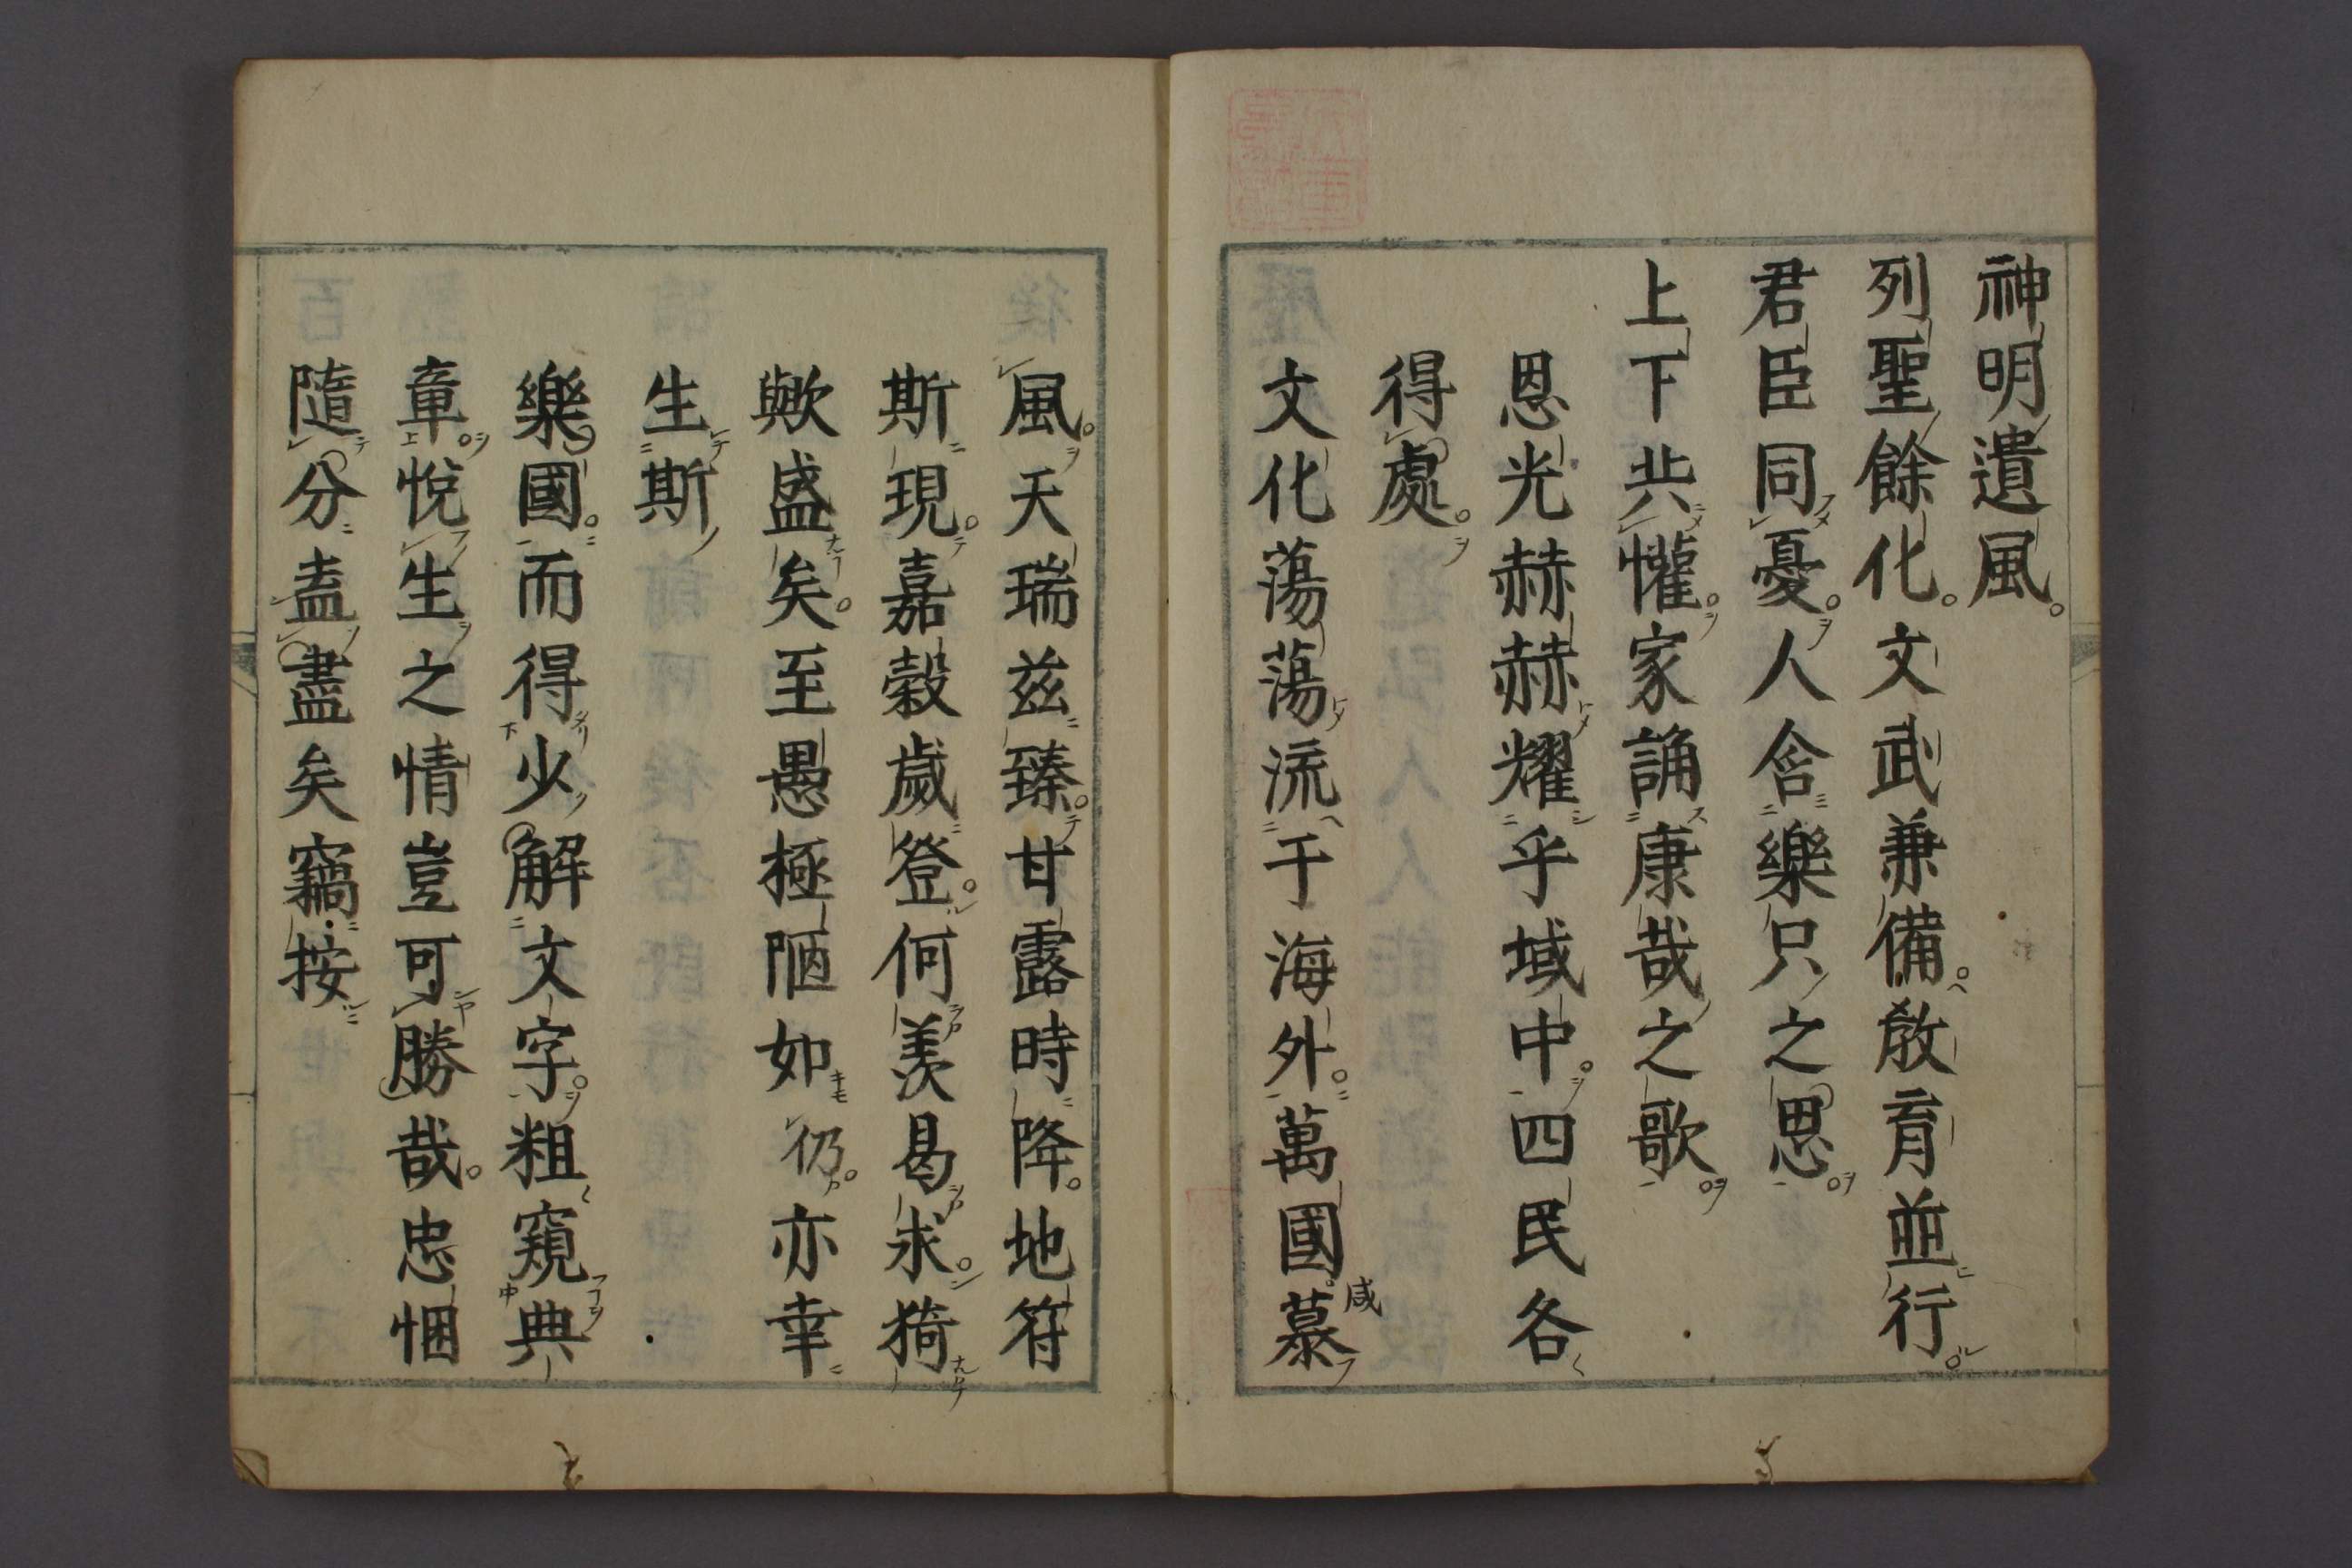 神明遺風。
列聖餘化。文武兼備。敎育並行。
君臣同憂。人含樂只之思。
上下共懽。家誦康哉之歌。
恩光赫赫耀乎域中。四民各
得處。
文化蕩蕩流于海外。萬國咸慕
風。天瑞兹臻。甘露時降。地符
斯現。嘉穀歲登。何羨曷求。猗
歟盛矣。至愚極陋如仍。亦幸
生斯
樂國。而得少解文字。粗窺典
章。悅生之情豈可勝哉。忠悃
隨分盍盡矣竊按